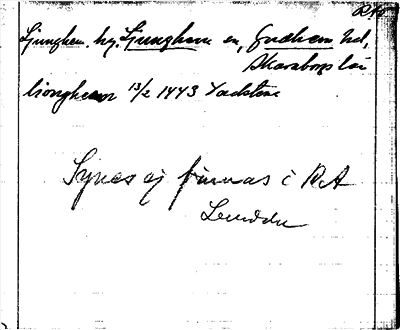 RA
Ljunghem, by, Ljunghem sn, Gudhem hd,
Skaraborgs län
lionghem 13/2 1443 Vadstena
Synes ej finnas i RA